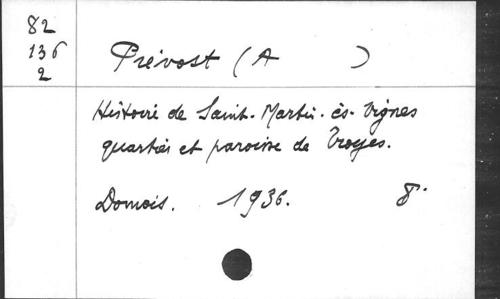 82
136
2
Prévost (A )
Histoire de Saint-Martin-ès-Vignes
quartier et paroisse de Troyes.
Domois. 1936. 8°